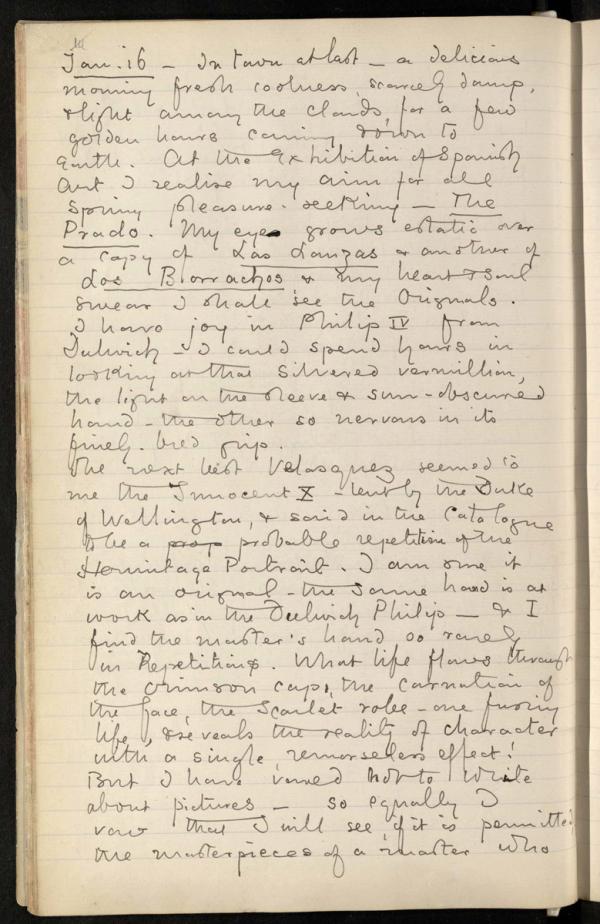 Jan. 16 - In town at last - a delicious
morning fresh coolness, scarcely damp,
& light among the clouds, for a few
golden hours coming down to
Earth. At the Exhibition of Spanish
Art I realise my aim for all
Spring pleasure-seeking - The
Prado. My eye grows estatic over
a copy of Las Lanzas & another of
Los Borrachos & my heart & soul
swear I shall see the Originals.
I have joy in Philip IV from
Dulwich - I could spend hours in
looking at that silvered vermillion,
the light on the sleeve & sun-obscured
hand - the other so nervous in its
finely-bred grip.
The next best Velasquez seemed to
me the Innocent X - lent by the Duke
of Wellington, & said in the Catalogue
to be a prop probable repetition of the
Hermitage Portrait. I am sure it
is an original - the same hand is at
work as in the Dulwich Philip - & I
find the master's hand so rarely
in Repetitions. What life flows through
the crimson cap, the carnation of
the face, the Scarlet robe - one fusing
life, reveals the reality of character
with a single, remorseless effect!
But I have vowed not to write
about pictures - so equally I
vow that I will see, if it is permitted
the masterpieces of a master who